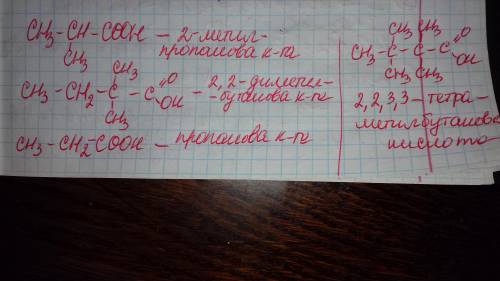 CH₃-CH-COOH - 2-метил-
CH₃ пропанова к-та
CH₃
CH₃-CH₂-C-C=O - 2,2-диметил-
OH -бутанова к-та
CH₃
CH₃-CH₂-COOH - пропанова к-та
CH₃ CH₃
CH₃-C-C-C=O
OH
CH₃ CH₃
2,2,3,3-тетра-
метилбутанова
кислота